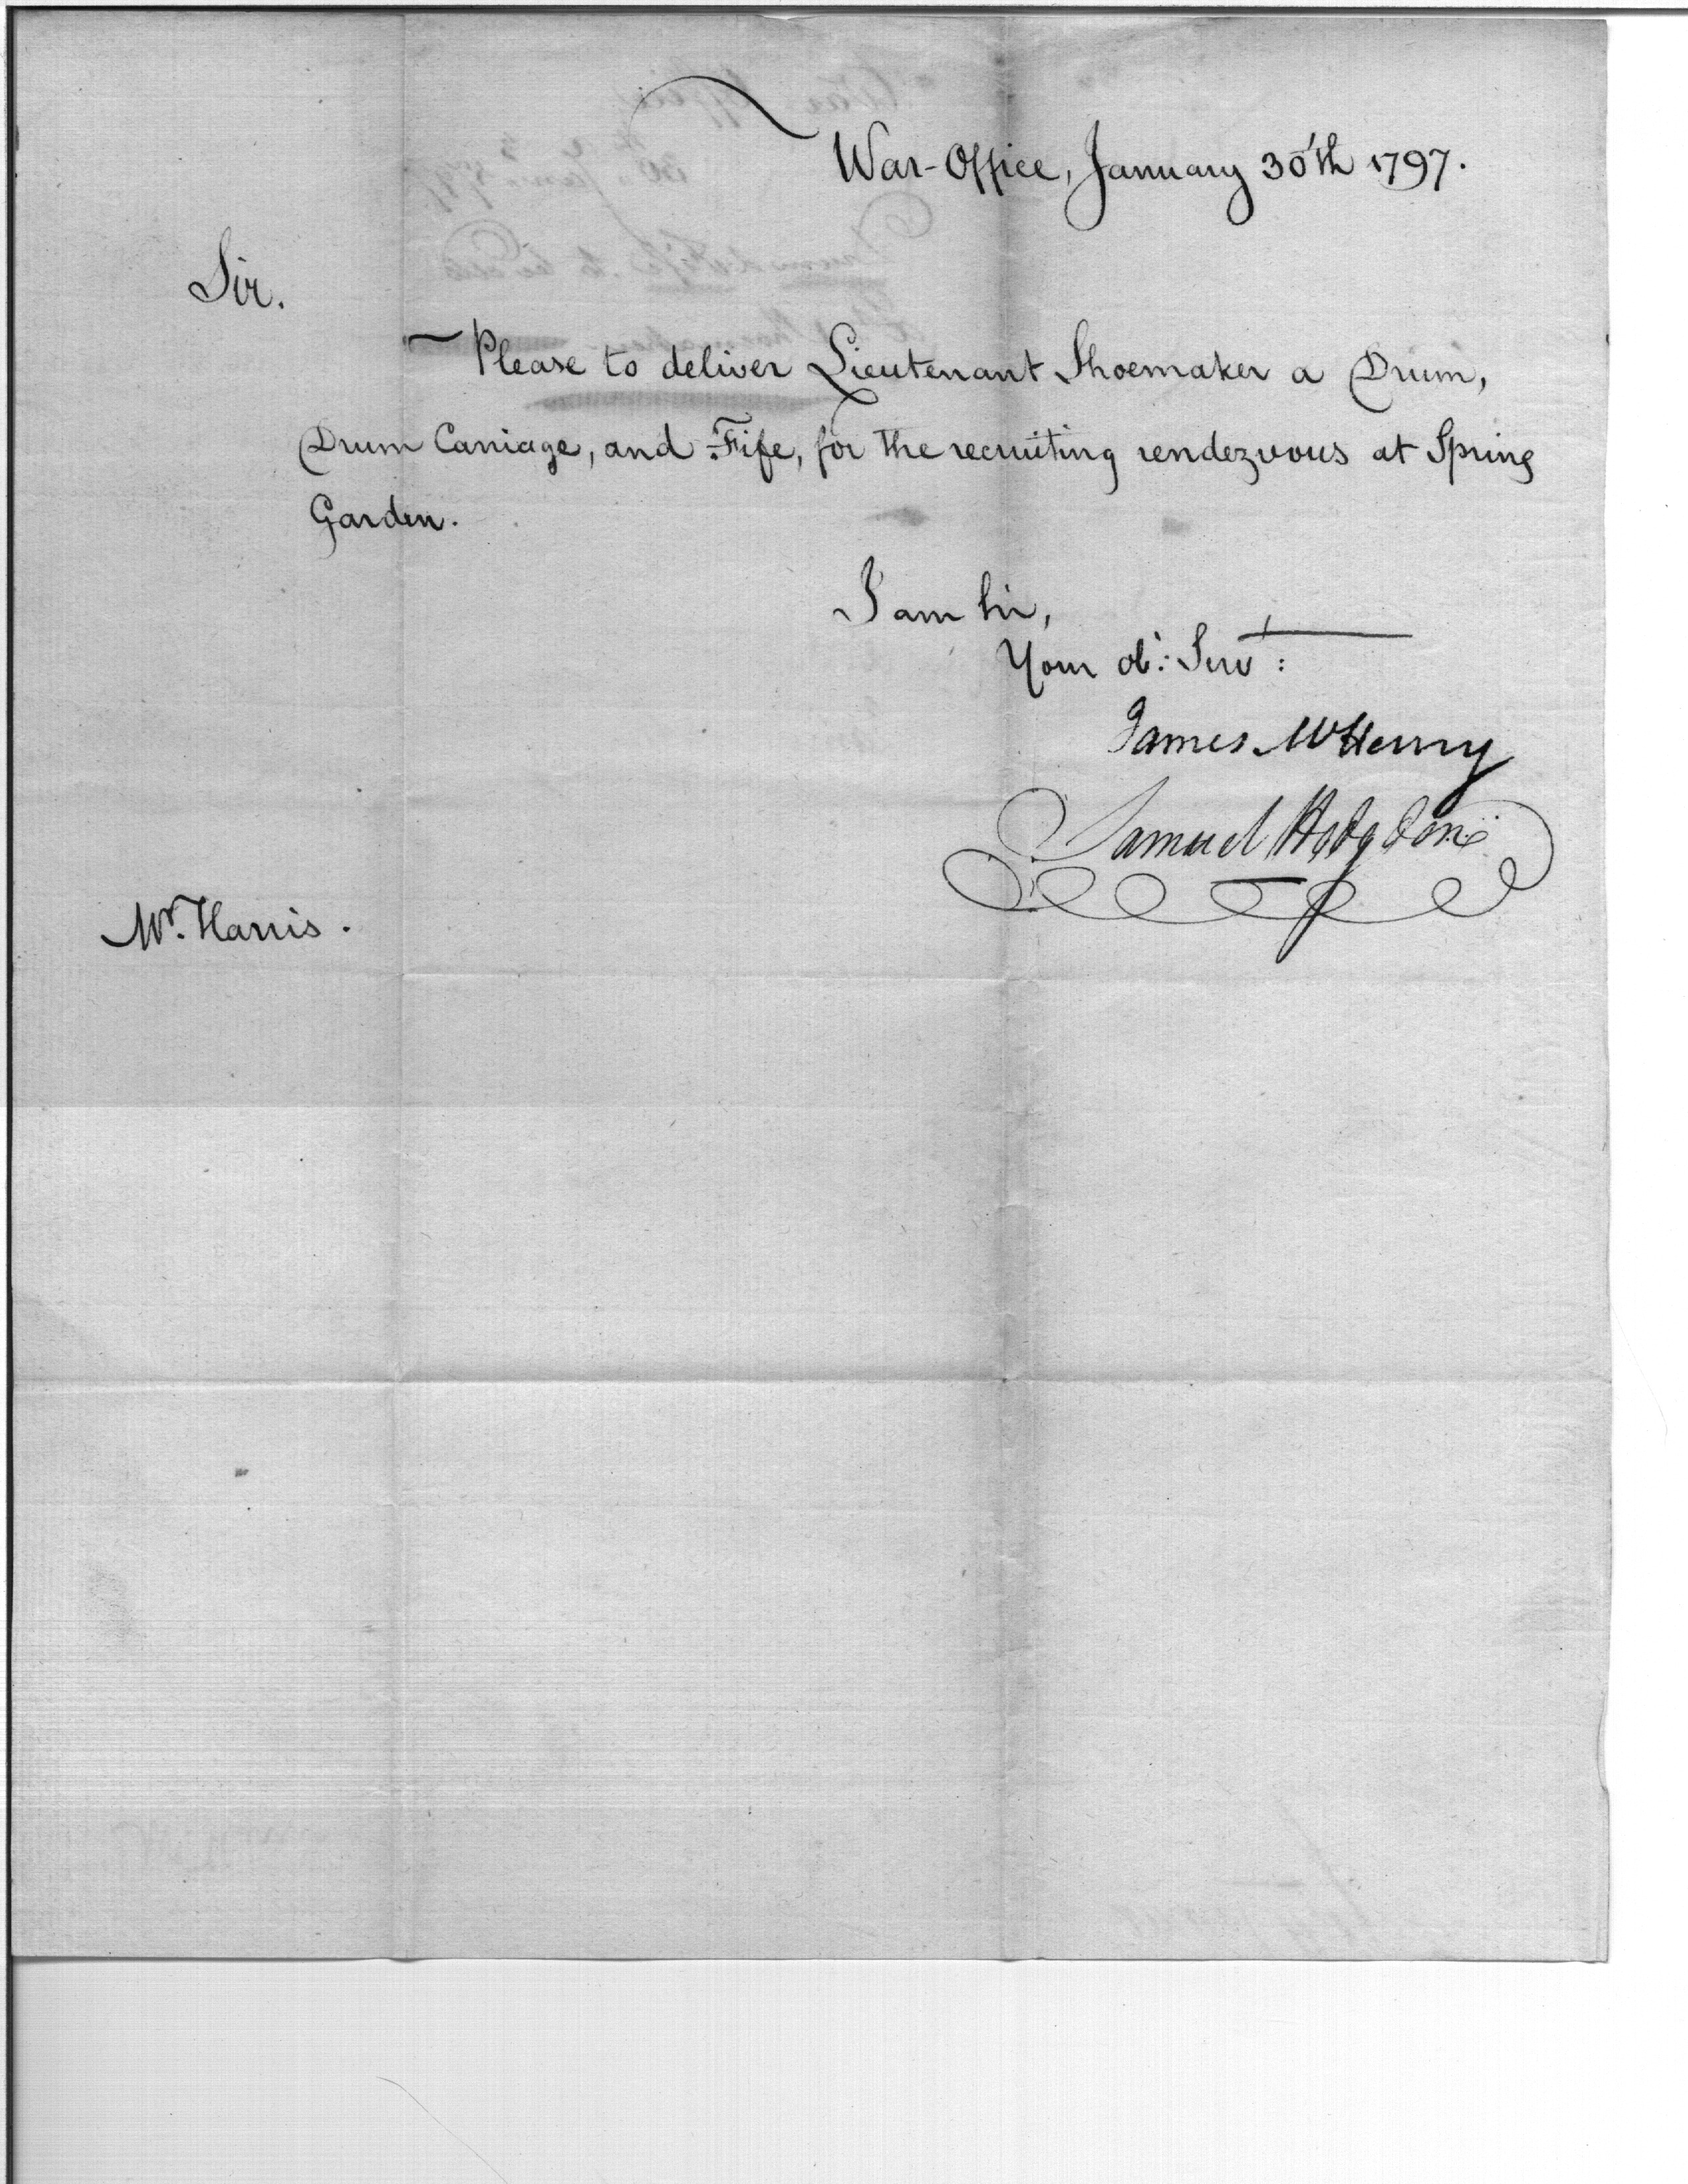 War-Office, January 30th 1797.
Sir.
Please to deliver Lieutenant Shoemaker a Drum,
Drum Carriage, and Fife, for the recruiting rendezvous at Spring
Garden.
I am Sir,
Your ob.t Serv.t
James McHenry
Samuel Hodgdon
Mr. Harris.